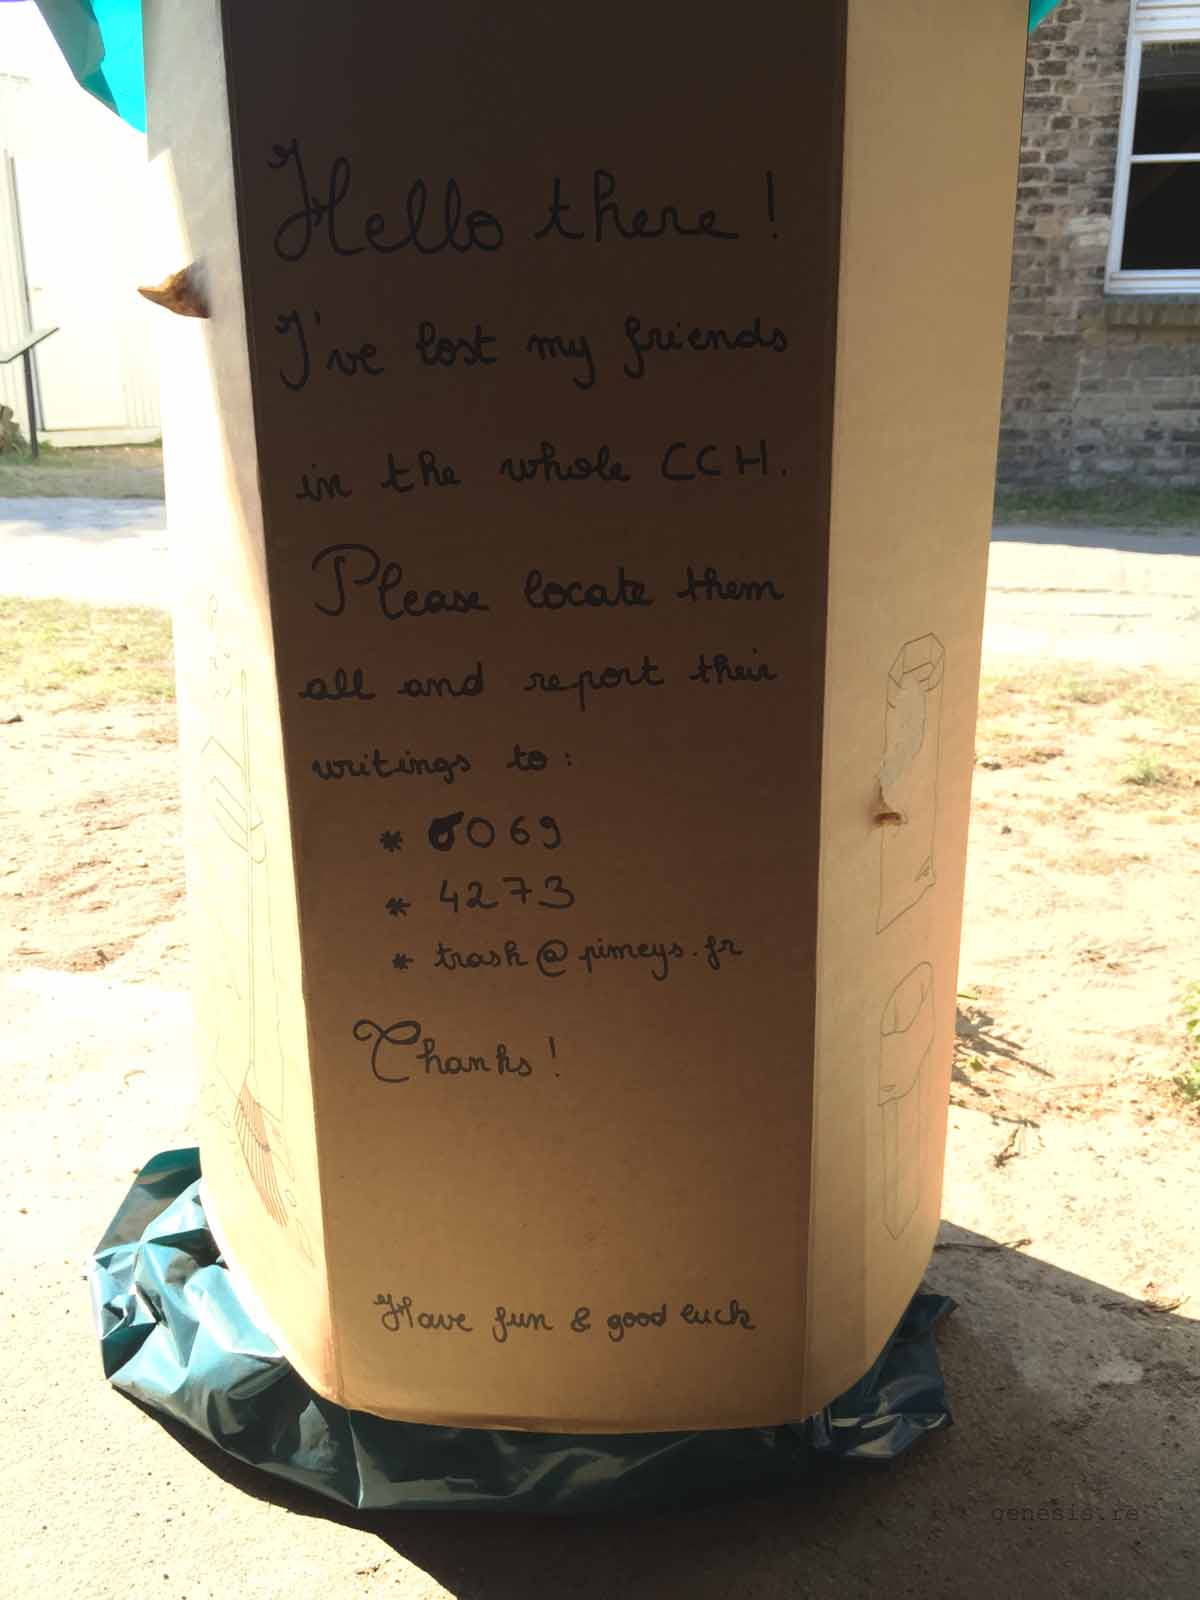 Hello there!
I've lost my friends
in the whole CCH.
Please locate them
all and report their
writings to:
* 0069
* 4273
* trash@pimeys.fr
Thanks!
Have fun & good luck
genesis.re